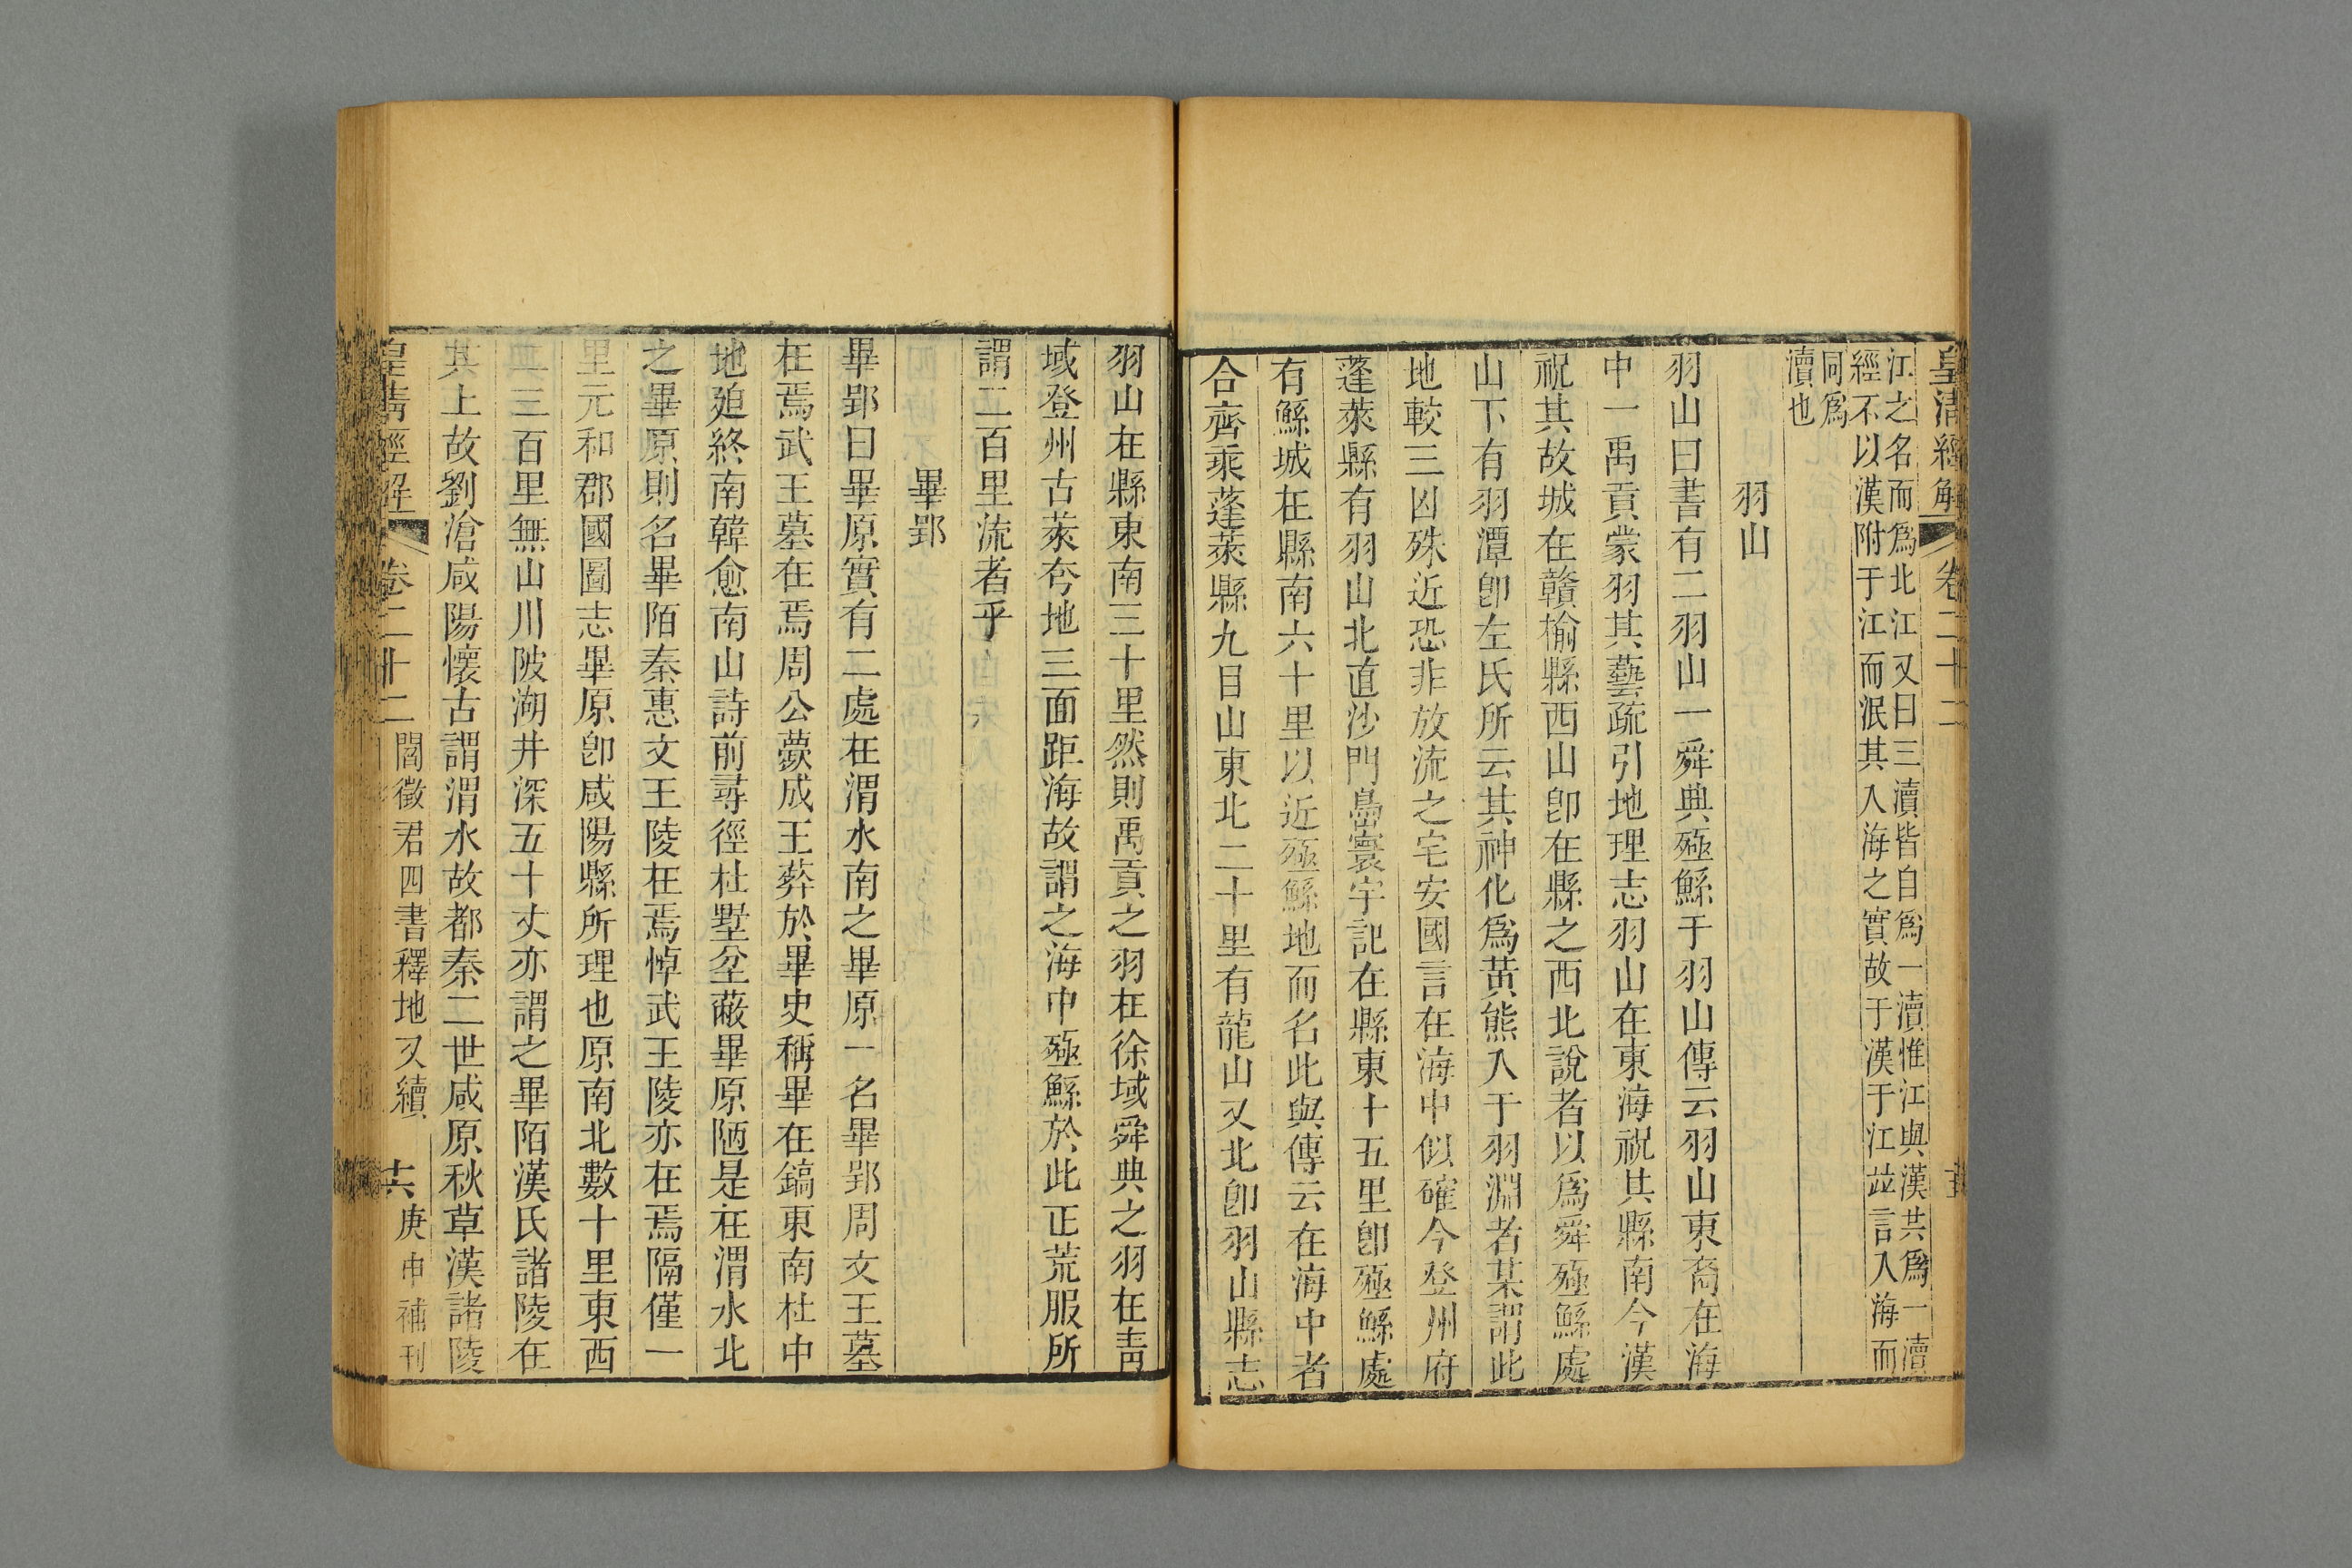 皇清經解 卷二十二
江之名而爲北江又曰三瀆皆自爲一瀆惟江與漢共爲一瀆
經不以漢附于江而泯其入海之實故于漢于江竝言入海而
同爲
瀆也
羽山
羽山曰書有二羽山一舜典殛鯀于羽山傳云羽山東裔在海
中一禹貢蒙羽其藝疏引地理志羽山在東海祝其縣南今漢
祝其故城在贛榆縣西山卽在縣之西北說者以爲舜殛鯀處
山下有羽潭卽左氏所云其神化爲黃熊入于羽淵者某謂此
地較三凶殊近恐非放流之宅安國言在海中似確今登州府
蓬萊縣有羽山北直沙門島寰宇記在縣東十五里卽殛鯀處
有鯀城在縣南六十里以近殛鯀地而名此與傳云在海中者
合齊乘蓬萊縣九目山東北二十里有龍山又北卽羽山縣志
羽山在縣東南三十里然則禹貢之羽在徐域舜典之羽在靑
域登州古萊夸地三面距海故謂之海中殛鯀於此正荒服所
謂二百里流者乎
畢郢
畢郢曰畢原實有二處在渭水南之畢原一名畢郢周文王墓
在焉武王墓在焉周公薨成王葬於畢史稱畢在鎬東南杜中
地廹終南韓愈南山詩前尋徑杜墅坌蔽畢原陋是在渭水北
之畢原則名畢陌秦惠文王陵在焉悼武王陵亦在焉隔僅一
里元和郡國圖志畢原卽咸陽縣所理也原南北數十里東西
二三百里無山川陂湖井深五十丈亦謂之畢陌漢氏諸陵在
其上故劉滄咸陽懷古謂渭水故都秦二世咸原秋草漢諸陵
皇清經解 卷二十二 閻徵君四書釋地又續 十六 庚申補刊